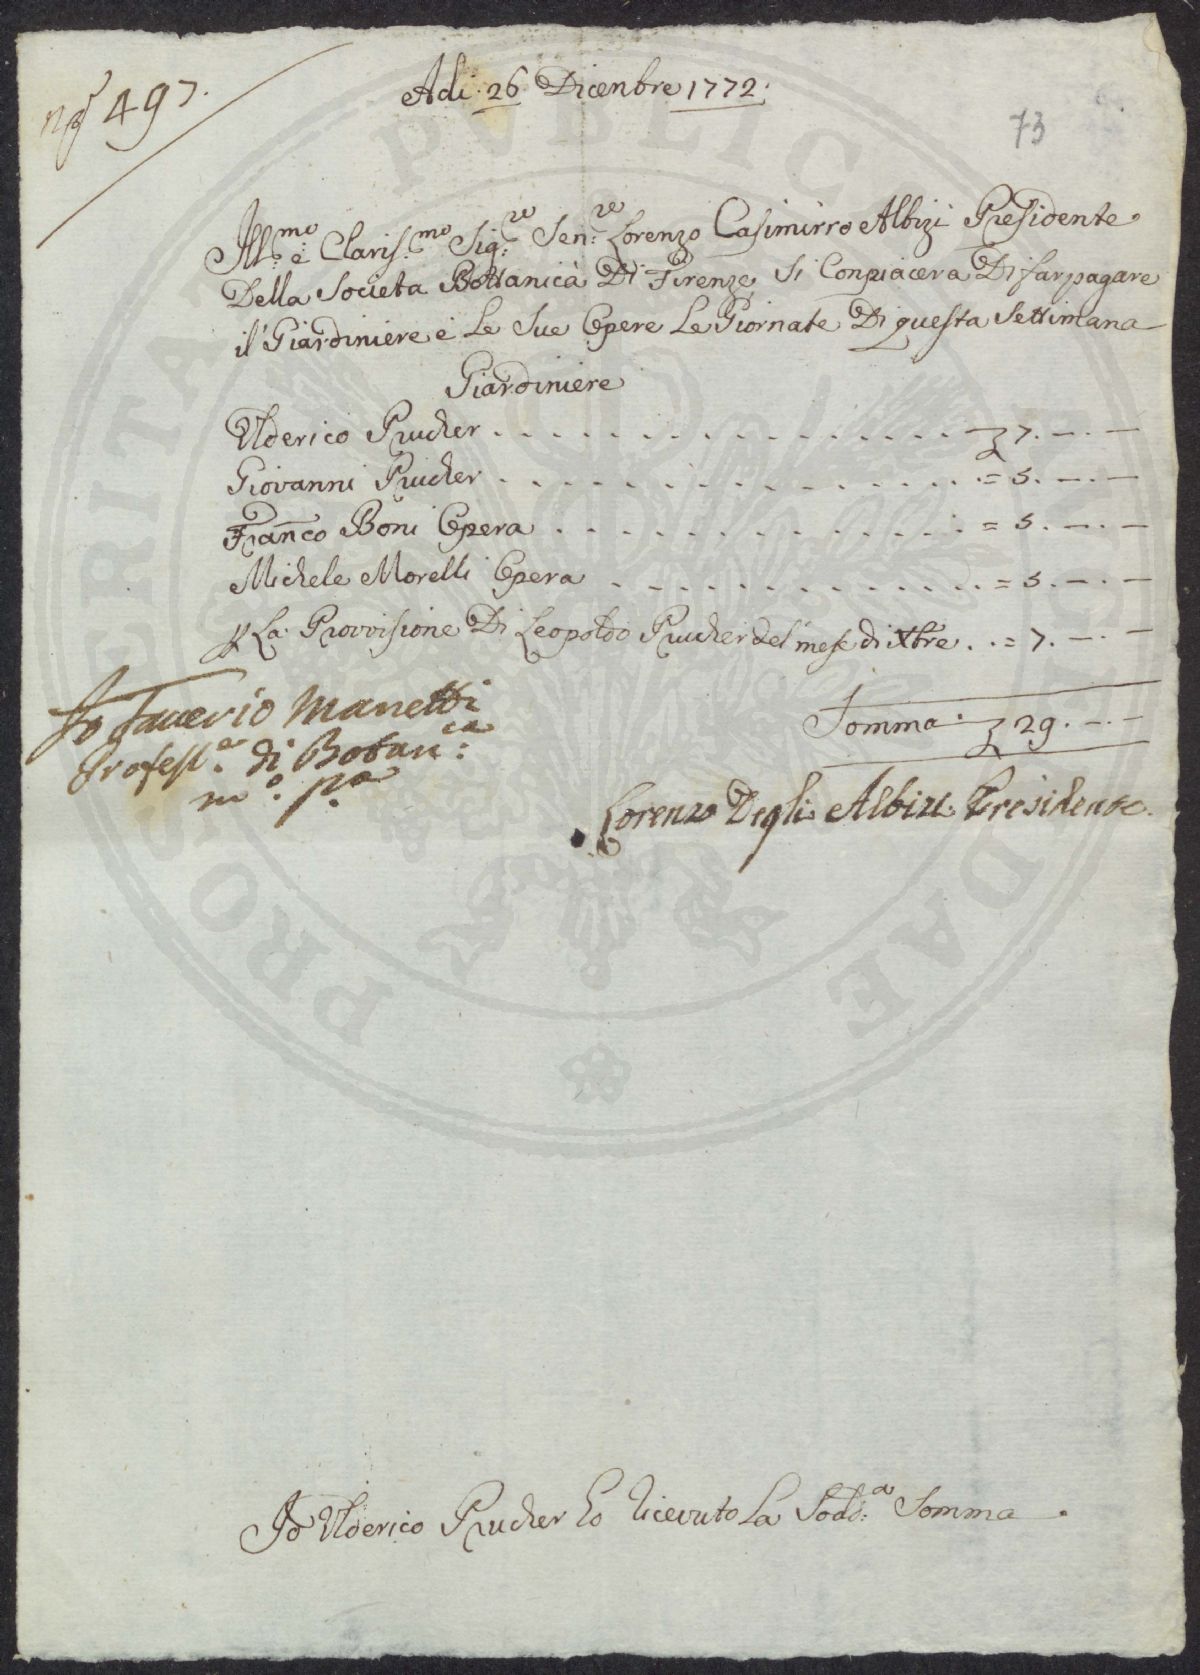 nº 497.
Adi 26 Dicenbre 1772.
73
Ill:mo e Claris:mo Sig:re Sen:re Lorenzo Casimirro Albizi Presidente
Della Societa Bottanica Di Firenze Si Conpiacera Di far pagare
il Giardiniere e Le Sue Opere Le Giornate Di questa Settimana
Giardiniere
Ulderico Prucher . . . . . . . . . . £ 7. —. —
Giovanni Prucher . . . . . . . . . . = 5. —. —
Franco Boni Opera . . . . . . . . . . = 5. —. —
Michele Morelli Opera . . . . . . . . . . = 5. —. —
p La Provvisione Di Leopoldo Prucher del mese di Xbre . . = 7. —. —
Somma. £ 29. —. —
Io Saverio Manetti
Profess.e di Botan:ca
m.o p.a
Lorenzo Degli Albizi Presidente.
Io Ulderico Prucher ho Ricevuto La Sodd:a Somma .
PROSPERITATI PVBLICAE